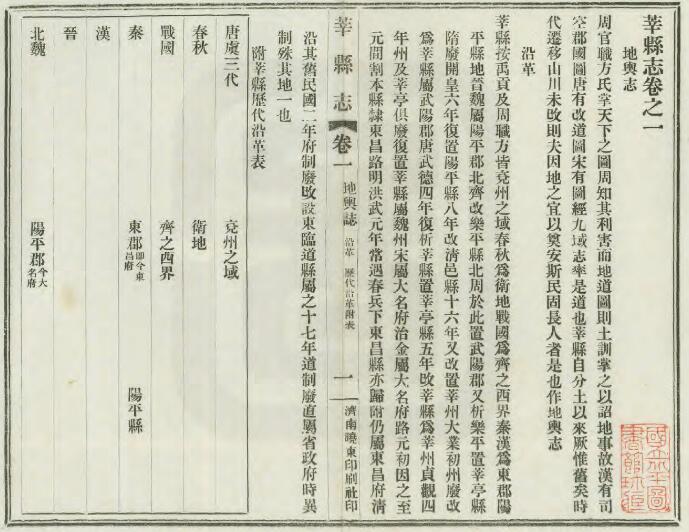 莘縣志卷之一
地輿志
周官職方氏掌天下之圖周知其利害而地道圖則土訓掌之以詔地事故漢有司
空郡國圖唐有改道圖宋有圖經九域志率是道也莘縣自分土以來厥惟舊矣時
代遷移山川未改則夫因地之宜以奠安斯民固長人者是也作地輿志
沿革
莘縣按禹貢及周職方皆兗州之域春秋爲衛地戰國爲齊之西界秦漢爲東郡陽
平縣地晉魏屬陽平郡北齊改樂平縣北周於此置武陽郡又析樂平置莘亭縣
隋廢開皇六年復置陽平縣八年改清邑縣十六年又改置莘州大業初州廢改
爲莘縣屬武陽郡唐武德四年復析莘縣置莘亭縣五年改莘縣爲莘州貞觀四
年州及莘亭俱廢復置莘縣屬魏州宋屬大名府治金屬大名府路元初因之至
元間割本縣隸東昌路明洪武元年常遇春兵下東昌縣亦歸附仍屬東昌府淸
莘縣志 卷一 地輿誌 沿革 歷代沿革附表 一 濟南曉東印刷社印
沿其舊民國二年府制廢改設東臨道縣屬之十七年道制廢直屬省政府時異
制殊其地一也
附莘縣歷代沿革表
唐虞三代 兗州之域
春秋 衛地
戰國 齊之西界
秦 東郡卽今東昌府 陽平縣
漢
晉
北魏 陽平郡今大名府